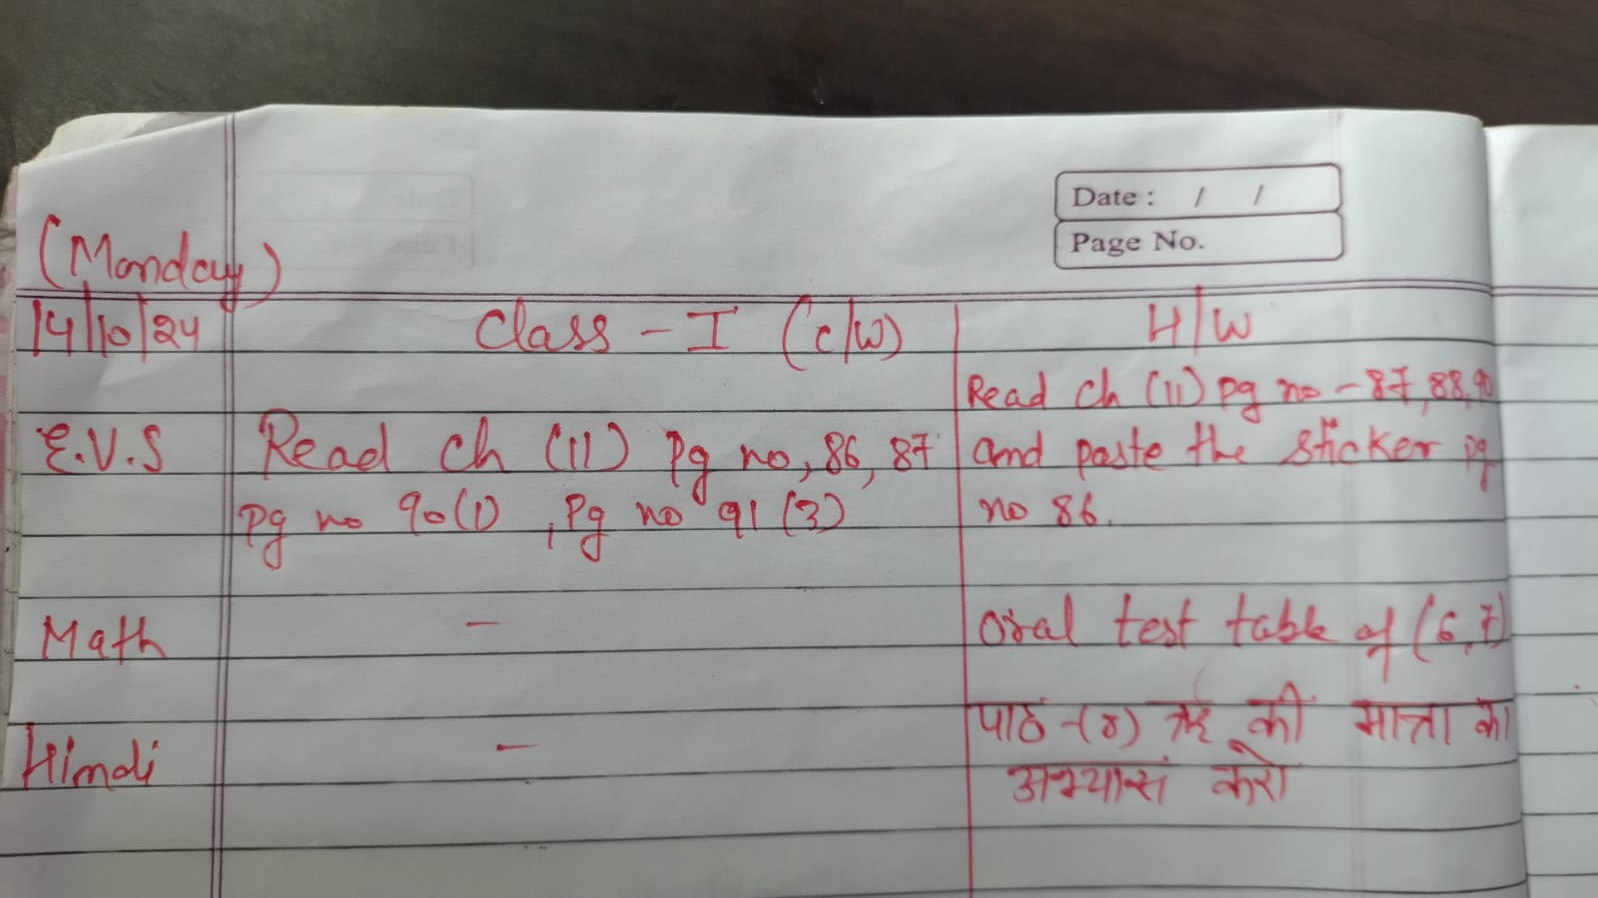 Date : / /
Page No.
(Monday)
14/10/24 Class - I (c/w) H/W
Read ch (11) pg no - 87, 88, 90
E.V.S Read ch (11) pg no, 86, 87 and paste the sticker pg
pg no 90(1) , Pg no 91 (3) no 86.
Math - Oral test table of (6,7)
Hindi - पाठ -(8) ऋ की मात्रा का
अभ्यास करो